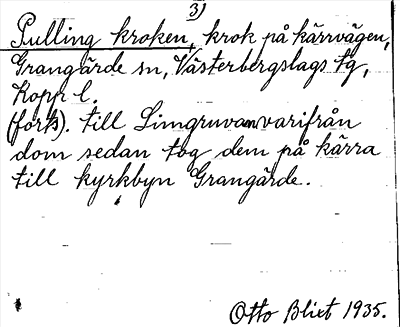 3)
Pulling kroken, krok på kärrvägen,
Grangärde sn, Västerbergslags tg,
Kopp l.
(forts). till Limgruvan varifrån
dom sedan tog dem på kärra
till kyrkbyn Grangärde.
Otto Blixt 1935.